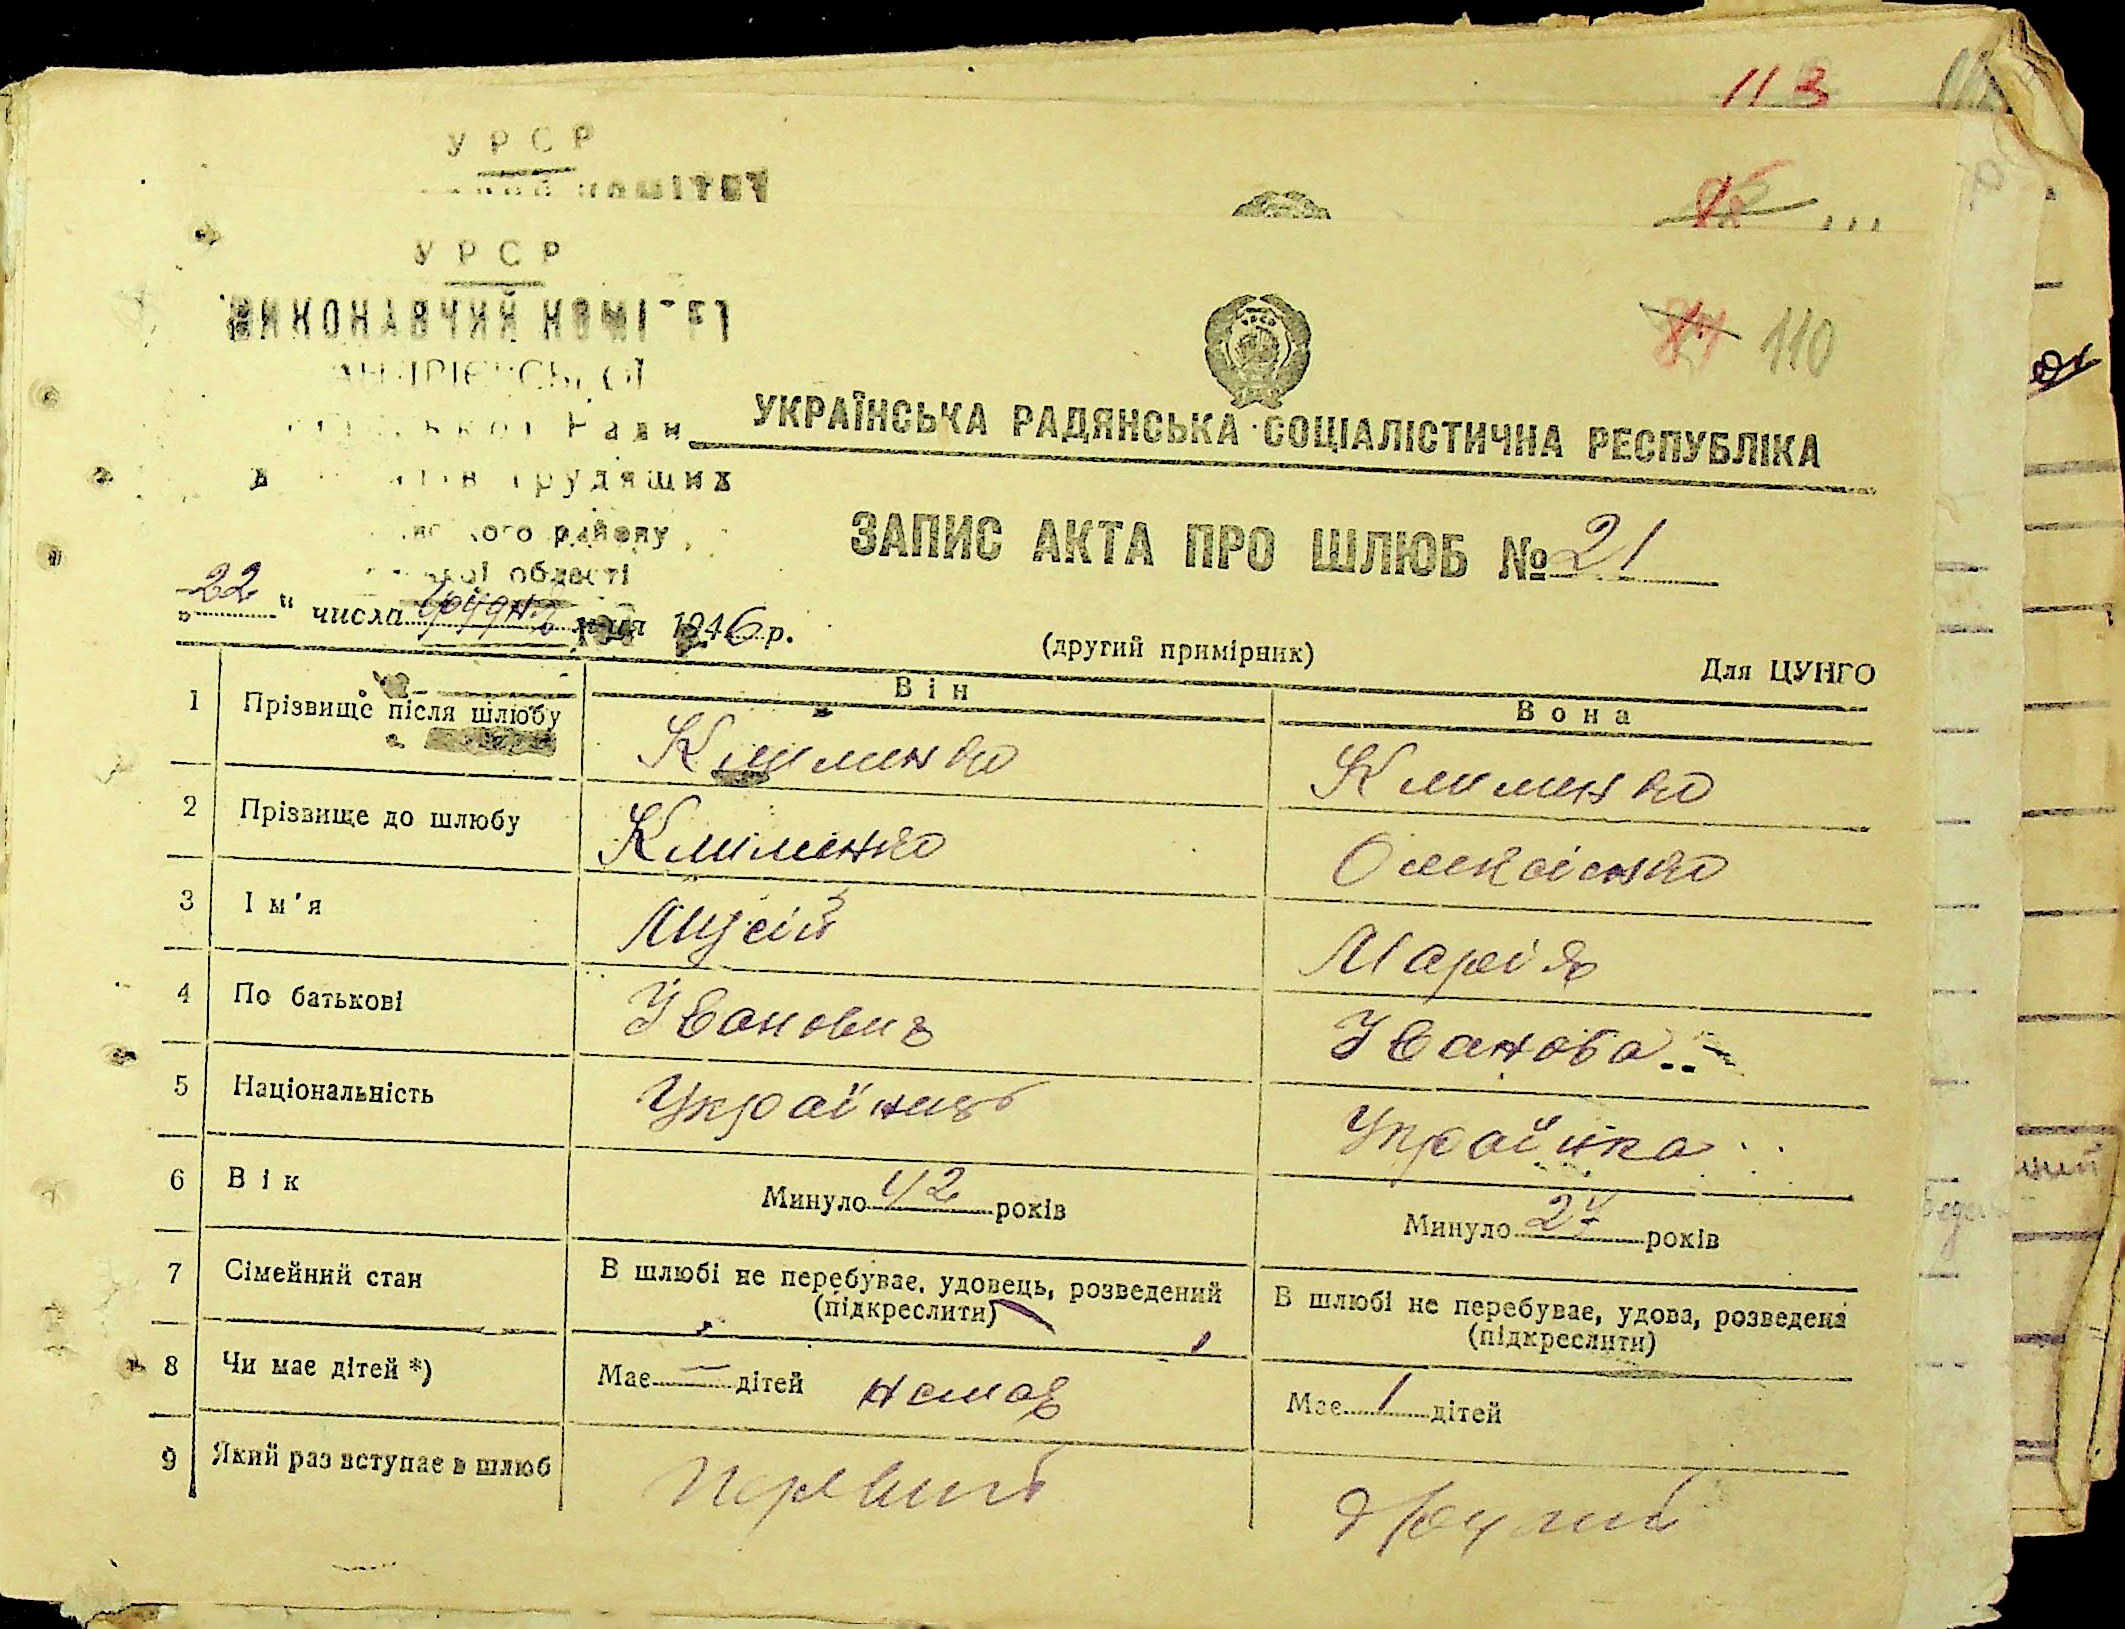 113
УРСР
комітет
УРСР
ВИКОНАВЧИЙ КОМІТЕТ
АНДРІЄВСЬКОЇ
Ради
трудящих
району
області
110
УКРАЇНСЬКА РАДЯНСЬКА СОЦІАЛІСТИЧНА РЕСПУБЛІКА
ЗАПИС АКТА ПРО ШЛЮБ № 21
„22" числа Грудня м-ця 1946 р.
(другий примірник)
Для ЦУНГО
Він
Вона
1 Прізвище після шлюбу Клименко Клименко
2 Прізвище до шлюбу Клименко Олексієнко
3 Ім'я Мусій Марія
4 По батькові Іванович Іванова
5 Національність Українець Українка
6 Вік Минуло 42 років Минуло 24 років
7 Сімейний стан В шлюбі не перебуває, удовець, розведений (підкреслити) В шлюбі не перебуває, удова, розведена (підкреслити)
8 Чи має дітей *) Має — дітей немає Має 1 дітей
9 Який раз вступає в шлюб Первий Другий